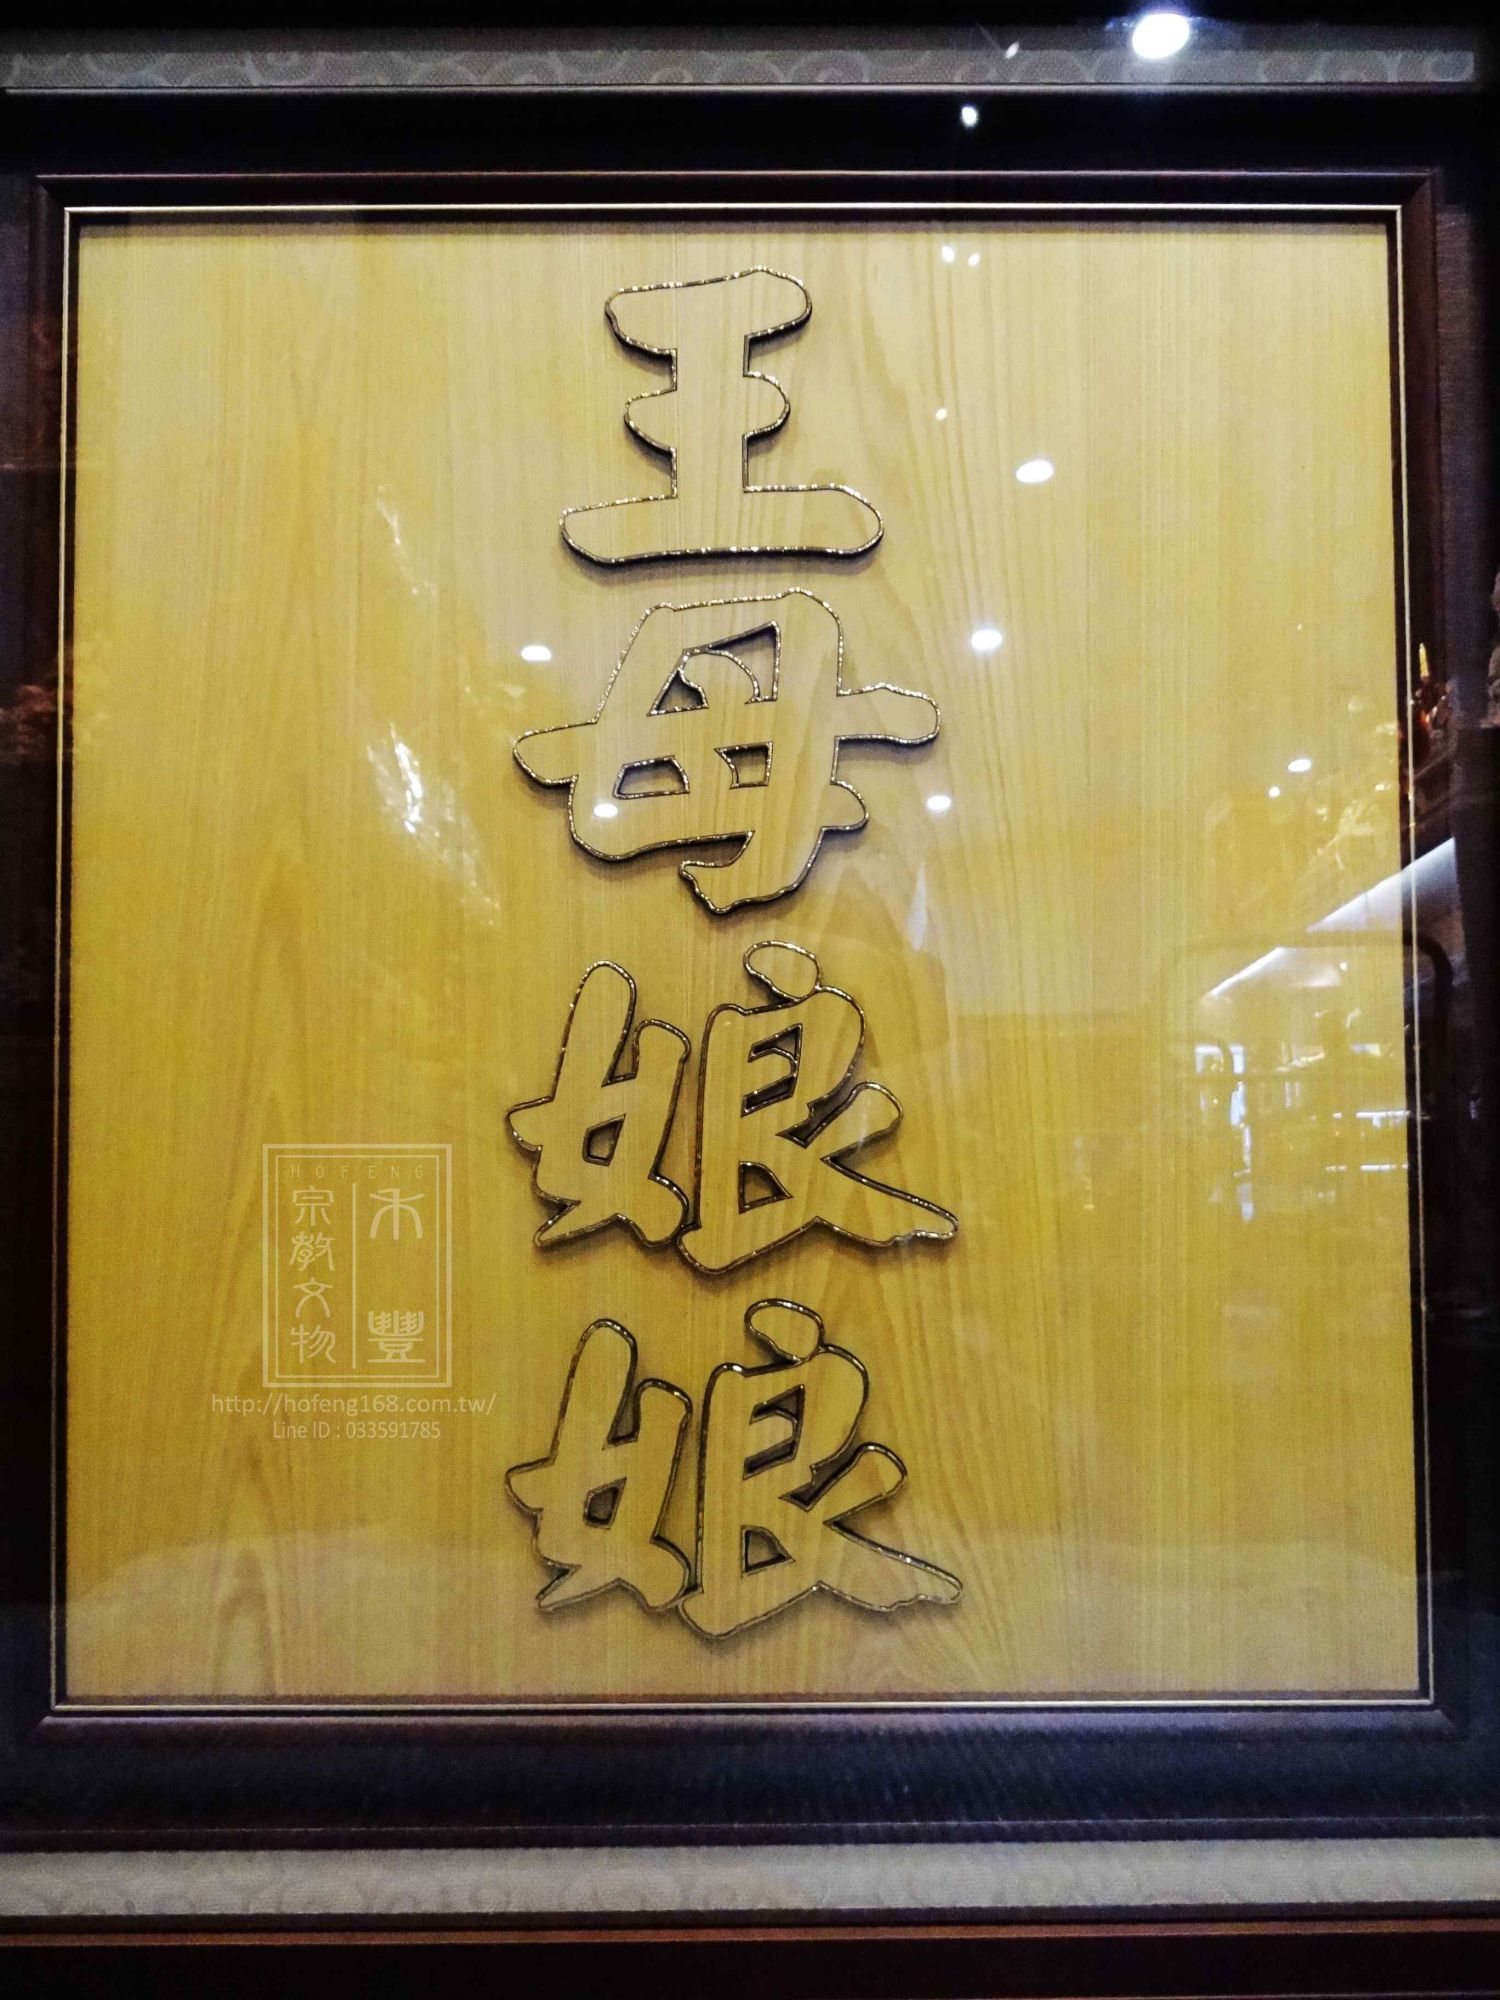 王母娘娘
HOFENG
禾豐
宗教文物
http://hofeng168.com.tw/
Line ID : 033591785